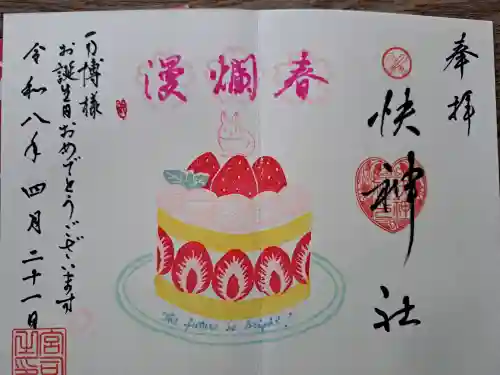 奉拝
快神社
春爛漫
The future is bright!
博様
お誕生日おめでとうございます
令和八年四月二十一日
宮司
之印